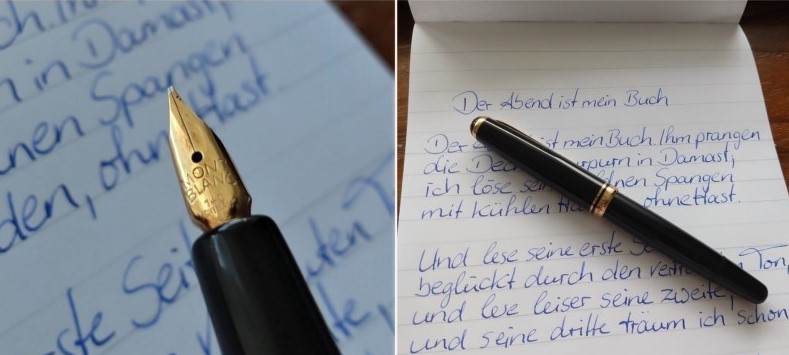 ch. Ihm
n in Damast,
nen Spangen
den, ohne Hast.
rste Seit
uten T
ite,
MONT
BLANC
Der Abend ist mein Buch
Der ist mein Buch. Ihm prangen
die Purpurn in Damast;
ich löse Spangen
mit kühlen ohne Hast.
Und lese seine erste
beglückt durch den Ton,
und lese leiser seine zweite,
und seine dritte träum ich schon